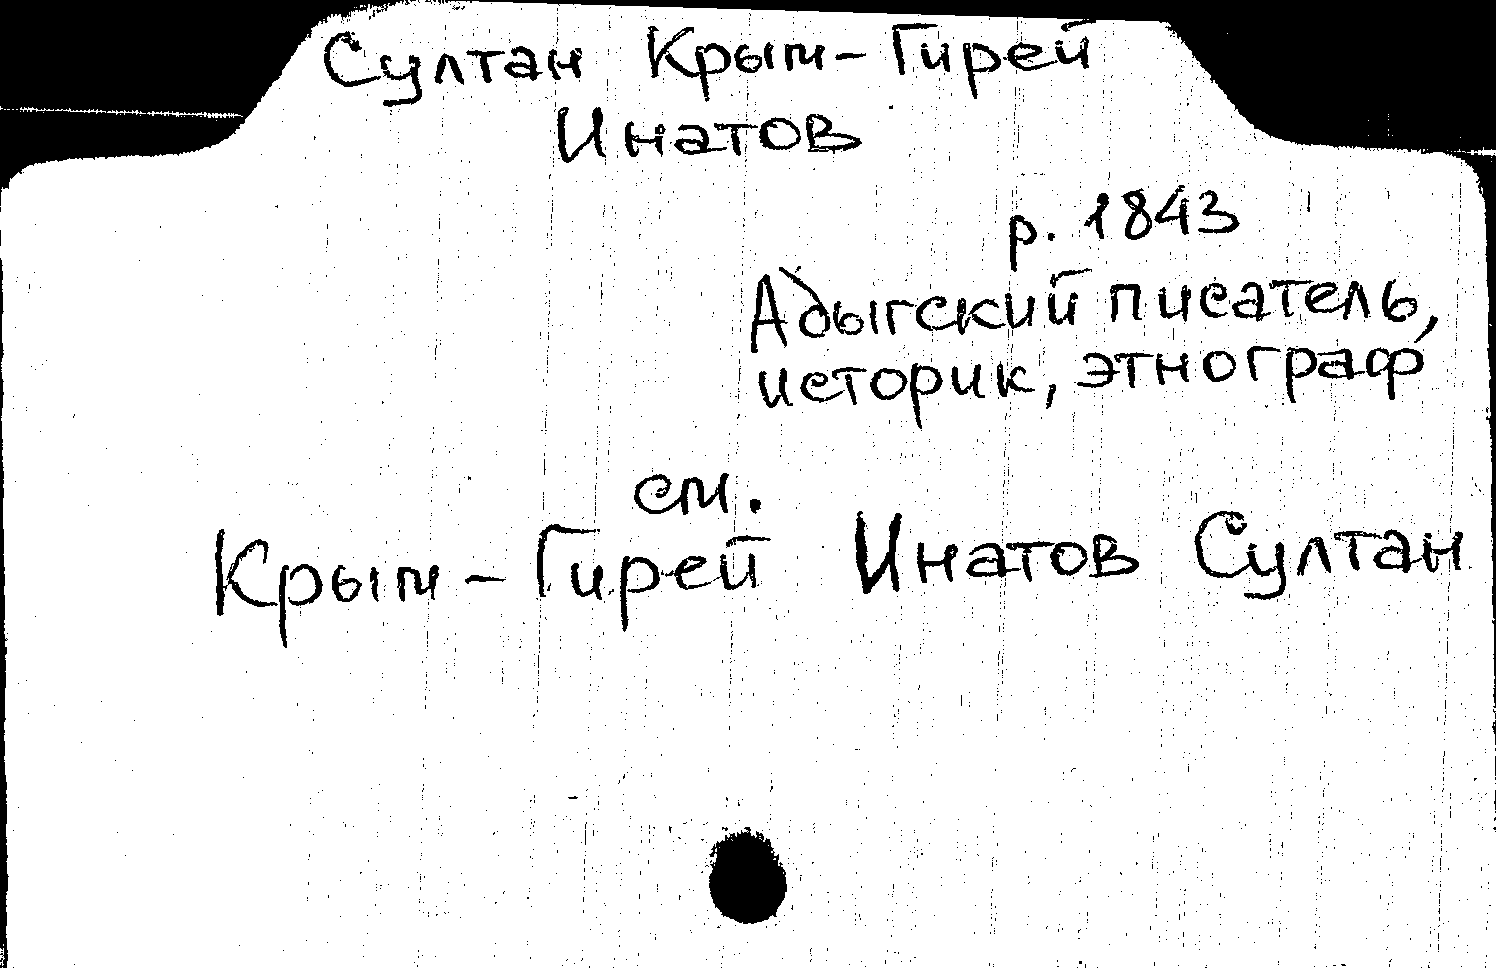 Султан Крым-Гирей
Инатов
р. 1843
Адыгский писатель,
историк, этнограф
см.
Крым-Гирей Инатов Султан